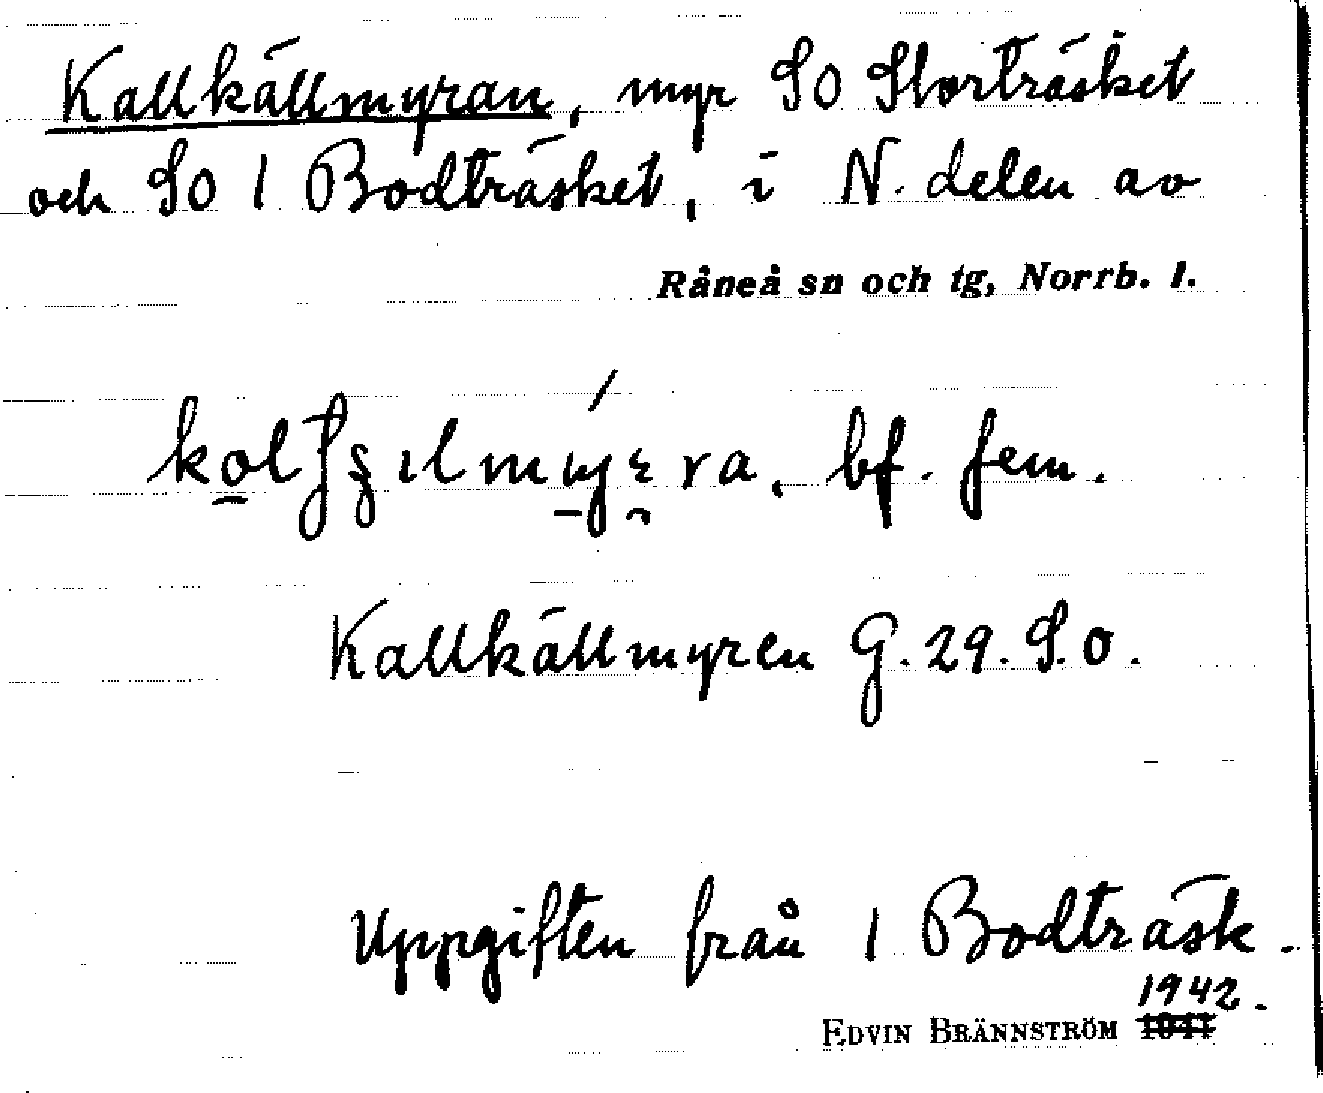 Kallkällmyran, myr SO Storträsket
och SO 1 Bodträsket, i N. delen av
Råneå sn och tg, Norrb. l.
bf. fem.
Kallkällmyren G. 29. S. o.
Uppgiften från 1 Bodträsk.
1942.
EDVIN BRÄNNSTRÖM 1941